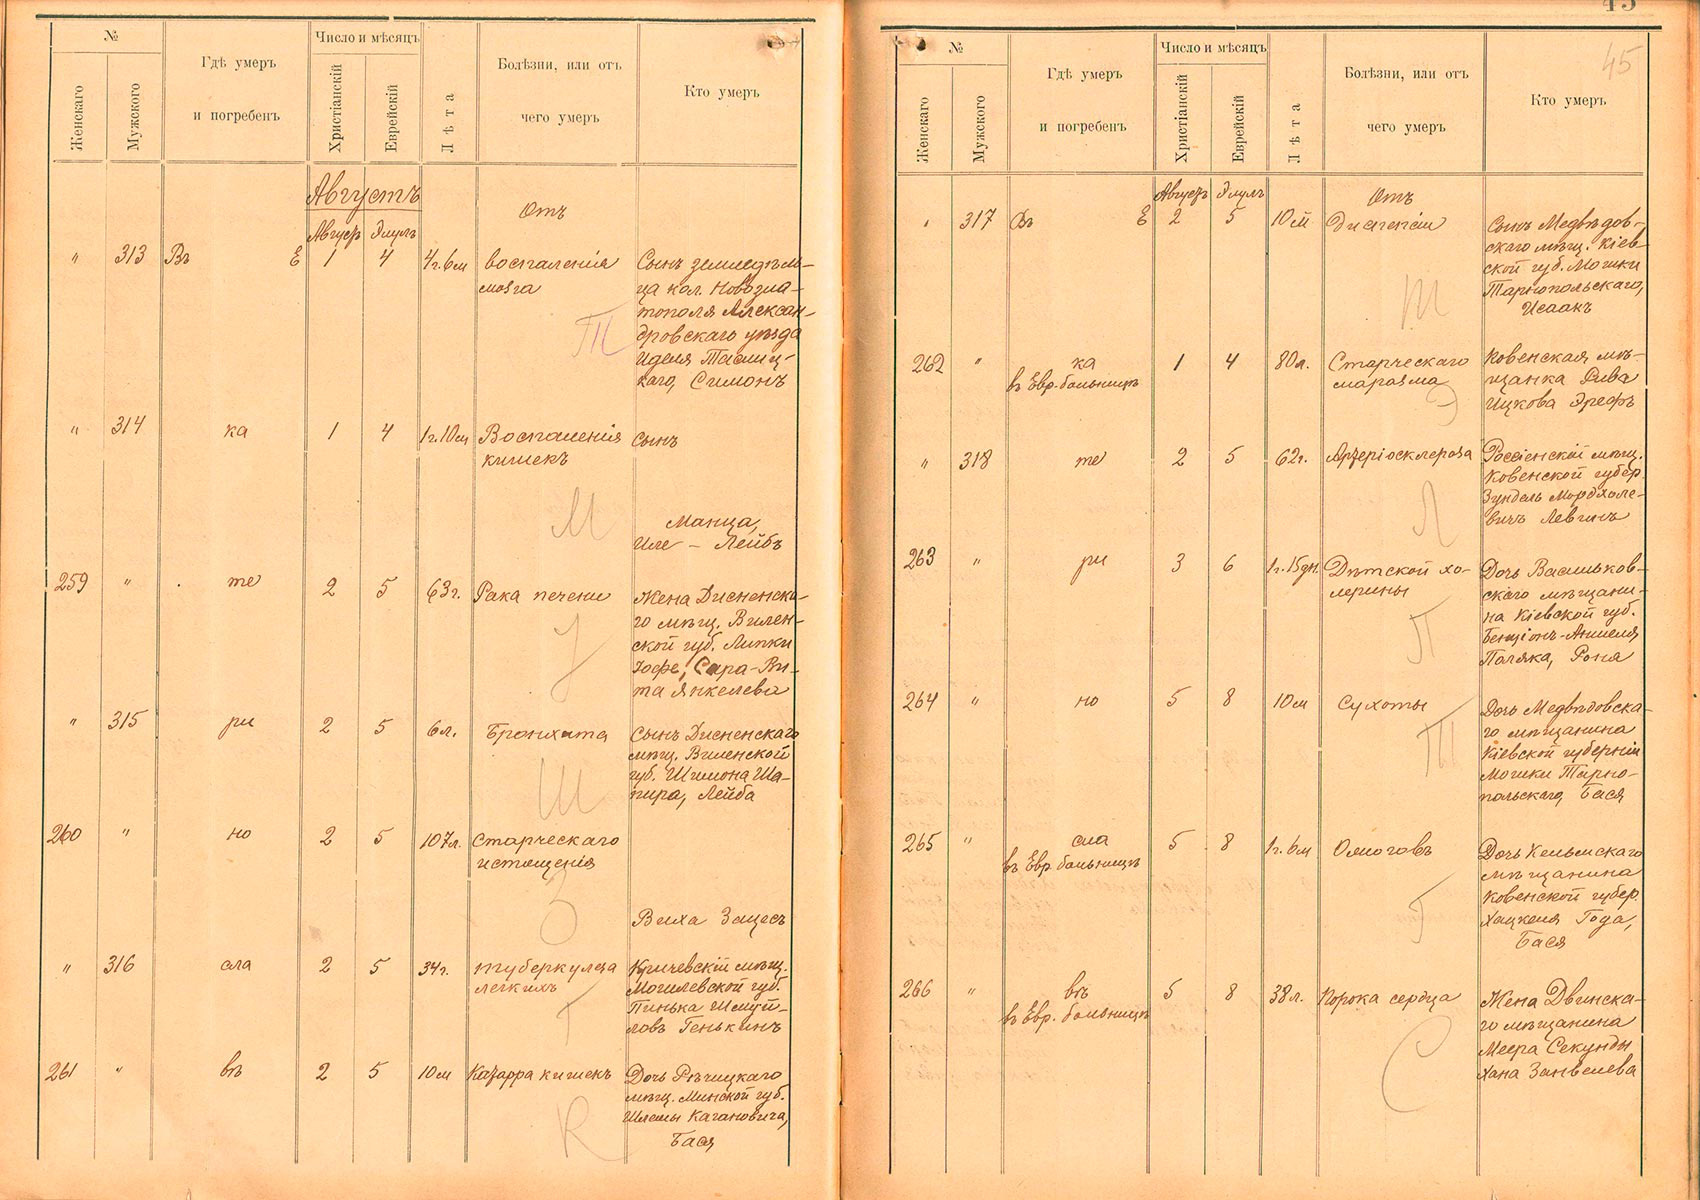 №
Женскаго
Мужского
Гдѣ умеръ
и погребенъ
Число и мѣсяцъ
Христіанскій
Еврейскій
Лѣта
Болѣзни, или отъ
чего умеръ
Кто умеръ
Августъ
Августъ Элулъ
Отъ
" 313 Въ Е 1 4 4г.6м воспаленія
мозга
Сынъ земледѣль-
ца кол. Новозла-
тополя Алексан-
дровскаго уѣзда
Иделя Таслиц-
каго, Симонъ
Т
" 314 ка 1 4 1г.10м Воспаленія
кишекъ
Сынъ
Манца,
Иле - Лейбъ
М
259 " те 2 5 63г. Рака печени
Жена Дисненска-
го мѣщ. Вилен-
ской губ. Липки
Іофе, Сара-Ри-
та Янкелева
" 315 ри 2 5 6л. Бронхита
Сынъ Дисненскаго
мѣщ. Виленской
губ. Шимона Ша-
пира, Лейба
Ш
260 " но 2 5 107л. Старческаго
истощенія
Виха Зацесъ
З
" 316 сла 2 5 34г. туберкулеза
легкихъ
Кричевскій мѣщ.
Могилевской губ.
Пинька Шмуй-
ловъ Генькинъ
Г
261 " въ 2 5 10м Катарра кишекъ
Дочь Рѣчицкаго
мѣщ. Минской губ.
Шлемы Кагановича,
Бася
К
45
45
№
Женскаго
Мужского
Гдѣ умеръ
и погребенъ
Число и мѣсяцъ
Христіанскій
Еврейскій
Лѣта
Болѣзни, или отъ
чего умеръ
Кто умеръ
Августъ Элулъ
Отъ
" 317 Въ Е 2 5 10м
Сынъ Медвѣдов-
скаго мѣщ. Кіев-
ской губ. Мошки
Тарнопольскаго,
Исаакъ
Т
262 " ка 1 4 80л. Старческаго
въ Евр. больницѣ
маразма
Ковенская мѣ-
щанка Рива
Ицкова Эрефъ
Э
" 318 те 2 5 62г. Артеріосклероза
Россіенскій мѣщ.
Ковенской губер.
Зундель Мордхеле-
вичъ Левинъ
Л
263 " ри 3 6 1г.15дн. Дѣтской хо-
лерины
Дочь Васильков-
скаго мѣщани-
на Кіевской губ.
Бенціонъ-Аншеля
Поляка, Роня
П
264 " но 5 8 10м Сухоты
Дочь Медвѣдовска-
го мѣщанина
Кіевской губерніи
Мошки Тарно-
польскаго, Бася
Т
265 " сла 5 8 1г.6м Ожоговъ
въ Евр. больницѣ
Дочь Кельмскаго
мѣщанина
Ковенской губер.
Хацкеля Года,
Бася
Г
266 " въ 5 8 38л. Порока сердца
въ Евр. больницѣ
Жена Двинска-
го мѣщанина
Меера Секунды
Хана Занвелева
С